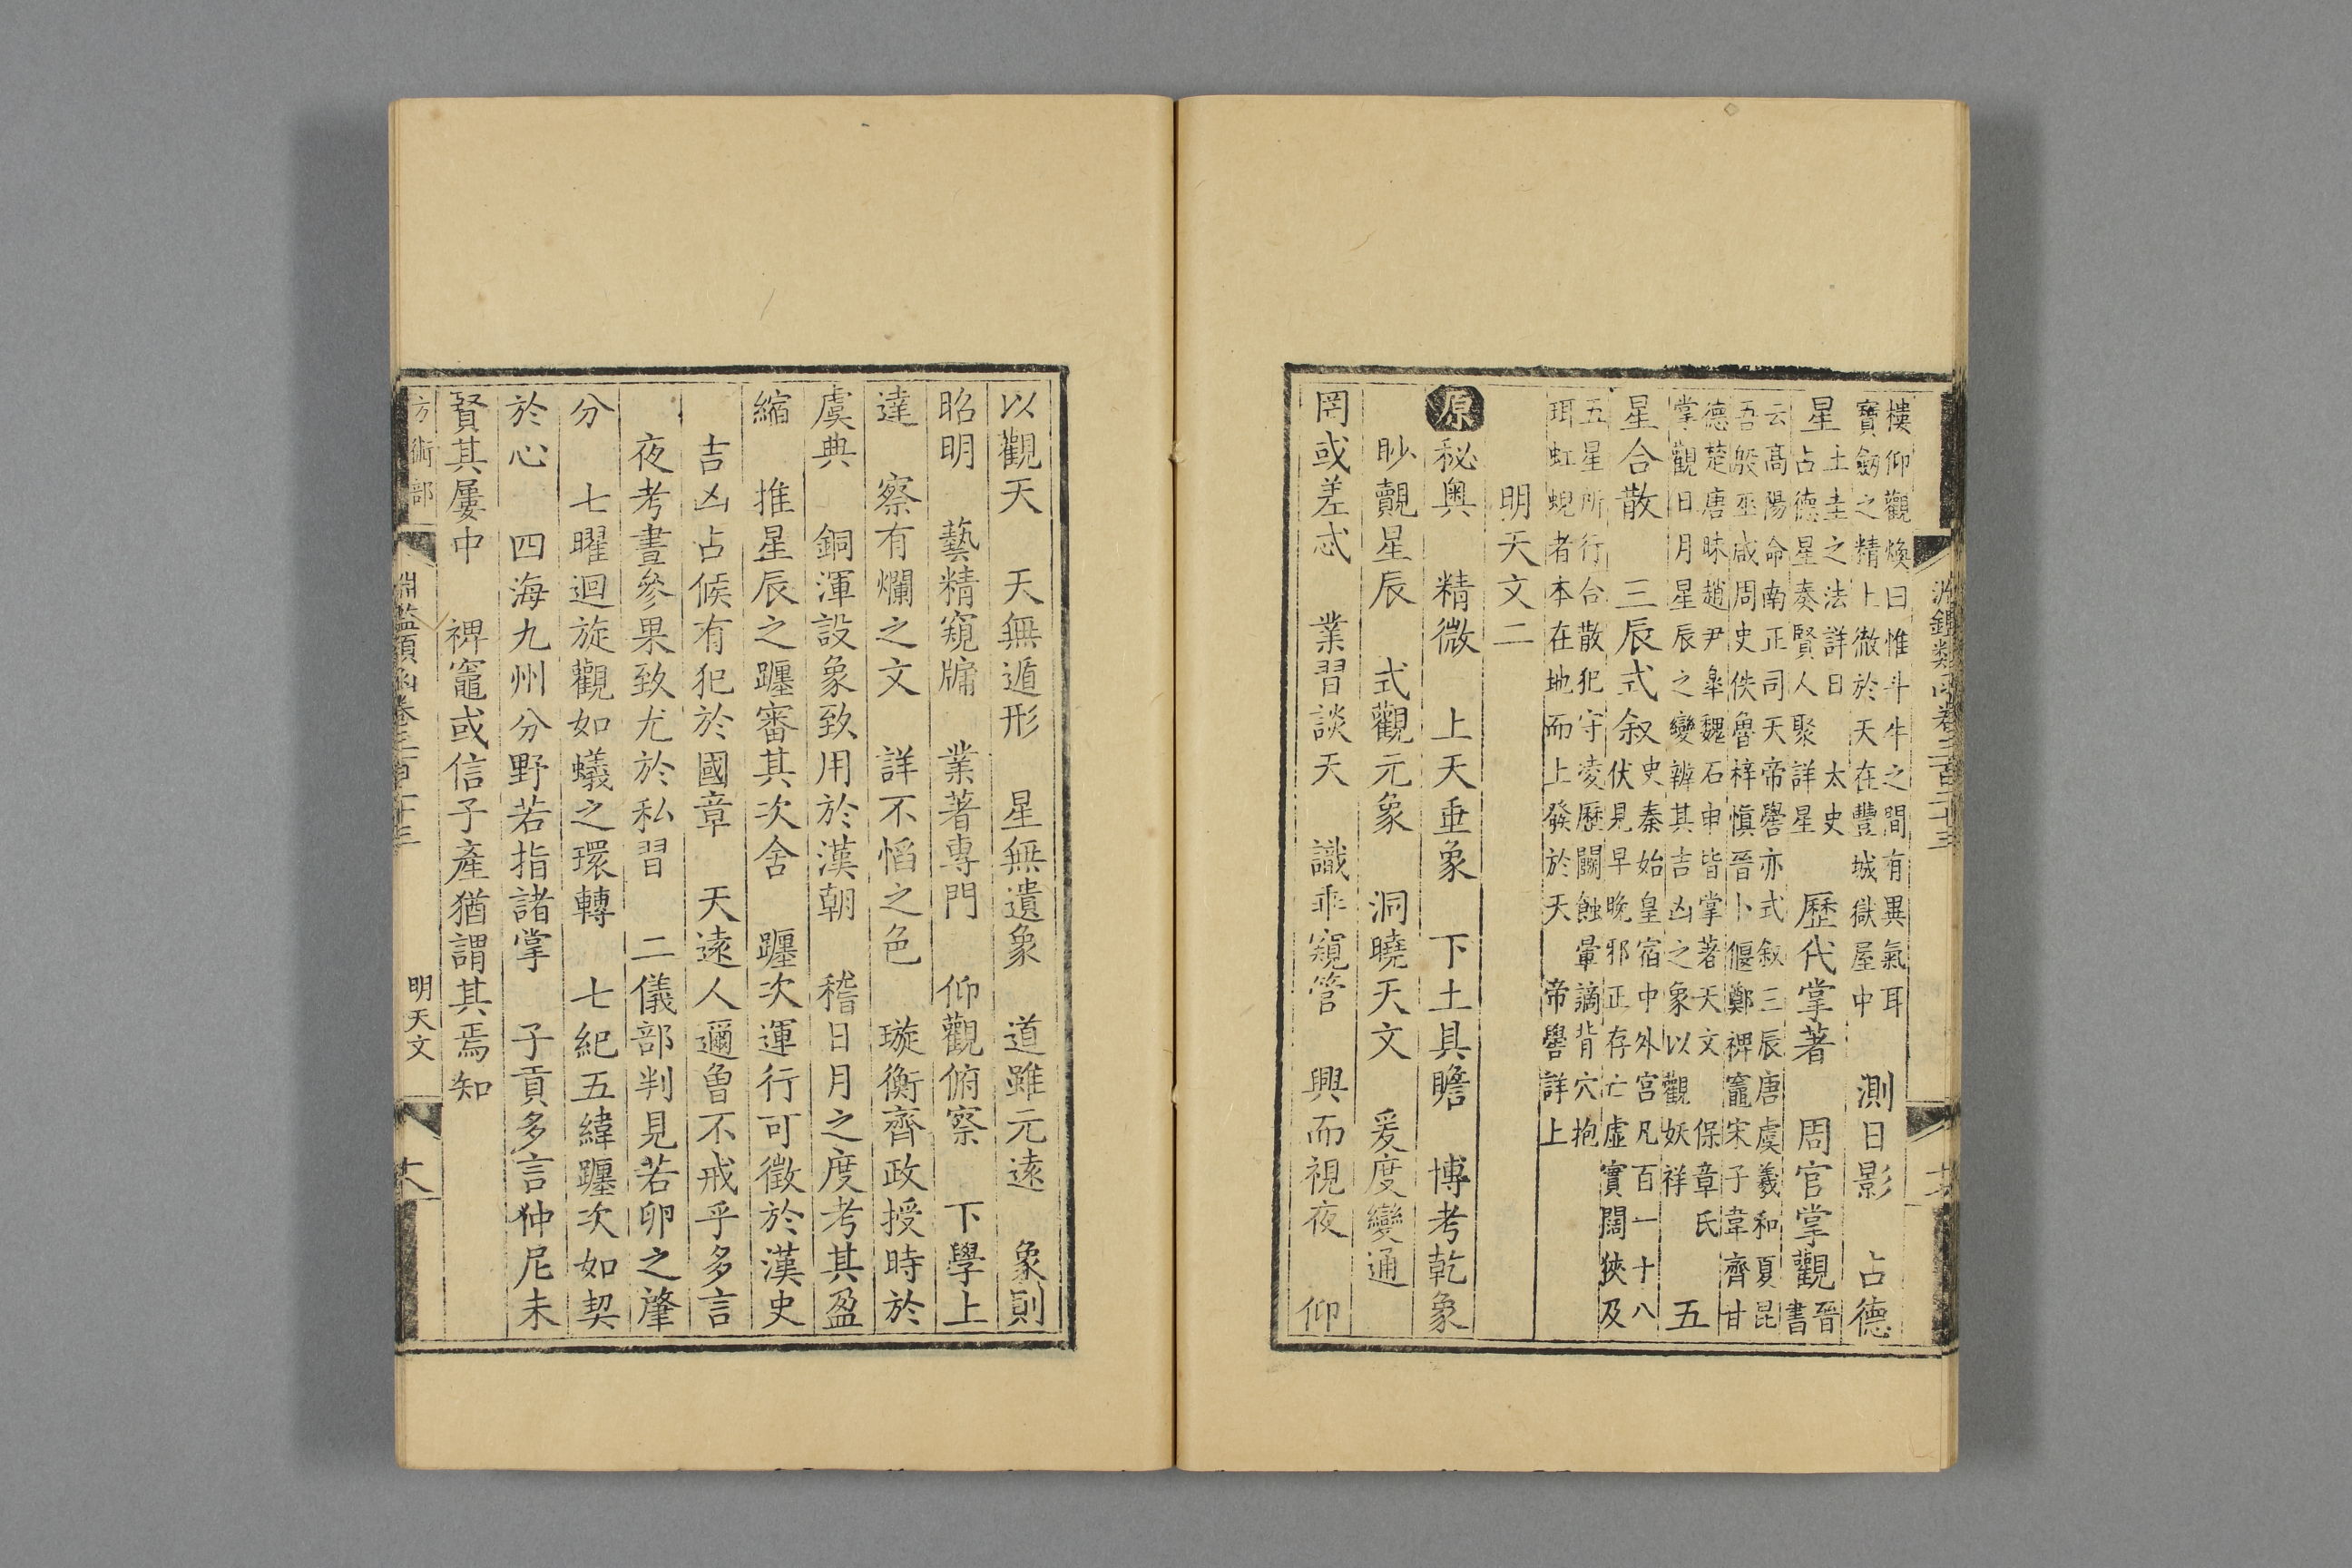 淵鑑類函卷三百二十三
樓仰觀煥曰惟斗牛之間有異氣耳
寶劒之精上徹於天在豐城獄屋中　測日影　占德
星
土圭之法詳日　太史
占德星奏賢人聚詳星
歷代掌著　周官掌觀
晉
書
云髙陽命南正司天帝嚳亦式叙三辰唐虞羲和夏昆
吾殷巫咸周史佚魯梓愼晉卜偃鄭裨竈宋子韋齊甘
德楚唐昧趙尹皋魏石申皆掌著天文　保章氏
掌觀日月星辰之變辨其吉凶之象以觀妖祥　五
星合散　三辰式叙
史秦始皇宿中外宫凡百一十八
伏見早晚邪正存亡虛實闊狹及
五星所行合散犯守凌歷闕蝕暈謫背穴抱
珥虹蜺者本在地而上發於天　帝嚳詳上
明天文二
原秘奥　精微　上天垂象　下土具瞻　博考乾象
眇覿星辰　式觀元象　洞曉天文　爰度變通
罔或差忒　業習談天　識乖窺管　興而視夜　仰
以觀天　天無遁形　星無遺象　道雖元遠　象則
昭明　藝精窺牖　業著專門　仰觀俯察　下學上
達　察有爛之文　詳不慆之色　璇衡齊政授時於
虞典　銅渾設象致用於漢朝　稽日月之度考其盈
縮　推星辰之躔審其次舍　躔次運行可徵於漢史
吉凶占候有犯於國章　天遠人邇魯不戒乎多言
夜考晝參果致尤於私習　二儀部判見若卵之肇
分　七曜迴旋觀如蟻之環轉　七紀五緯躔次如契
於心　四海九州分野若指諸掌　子貢多言仲尼未
賢其屢中　裨竈或信子產猶謂其焉知
方術部　淵鑑類函卷三百二十三　明天文